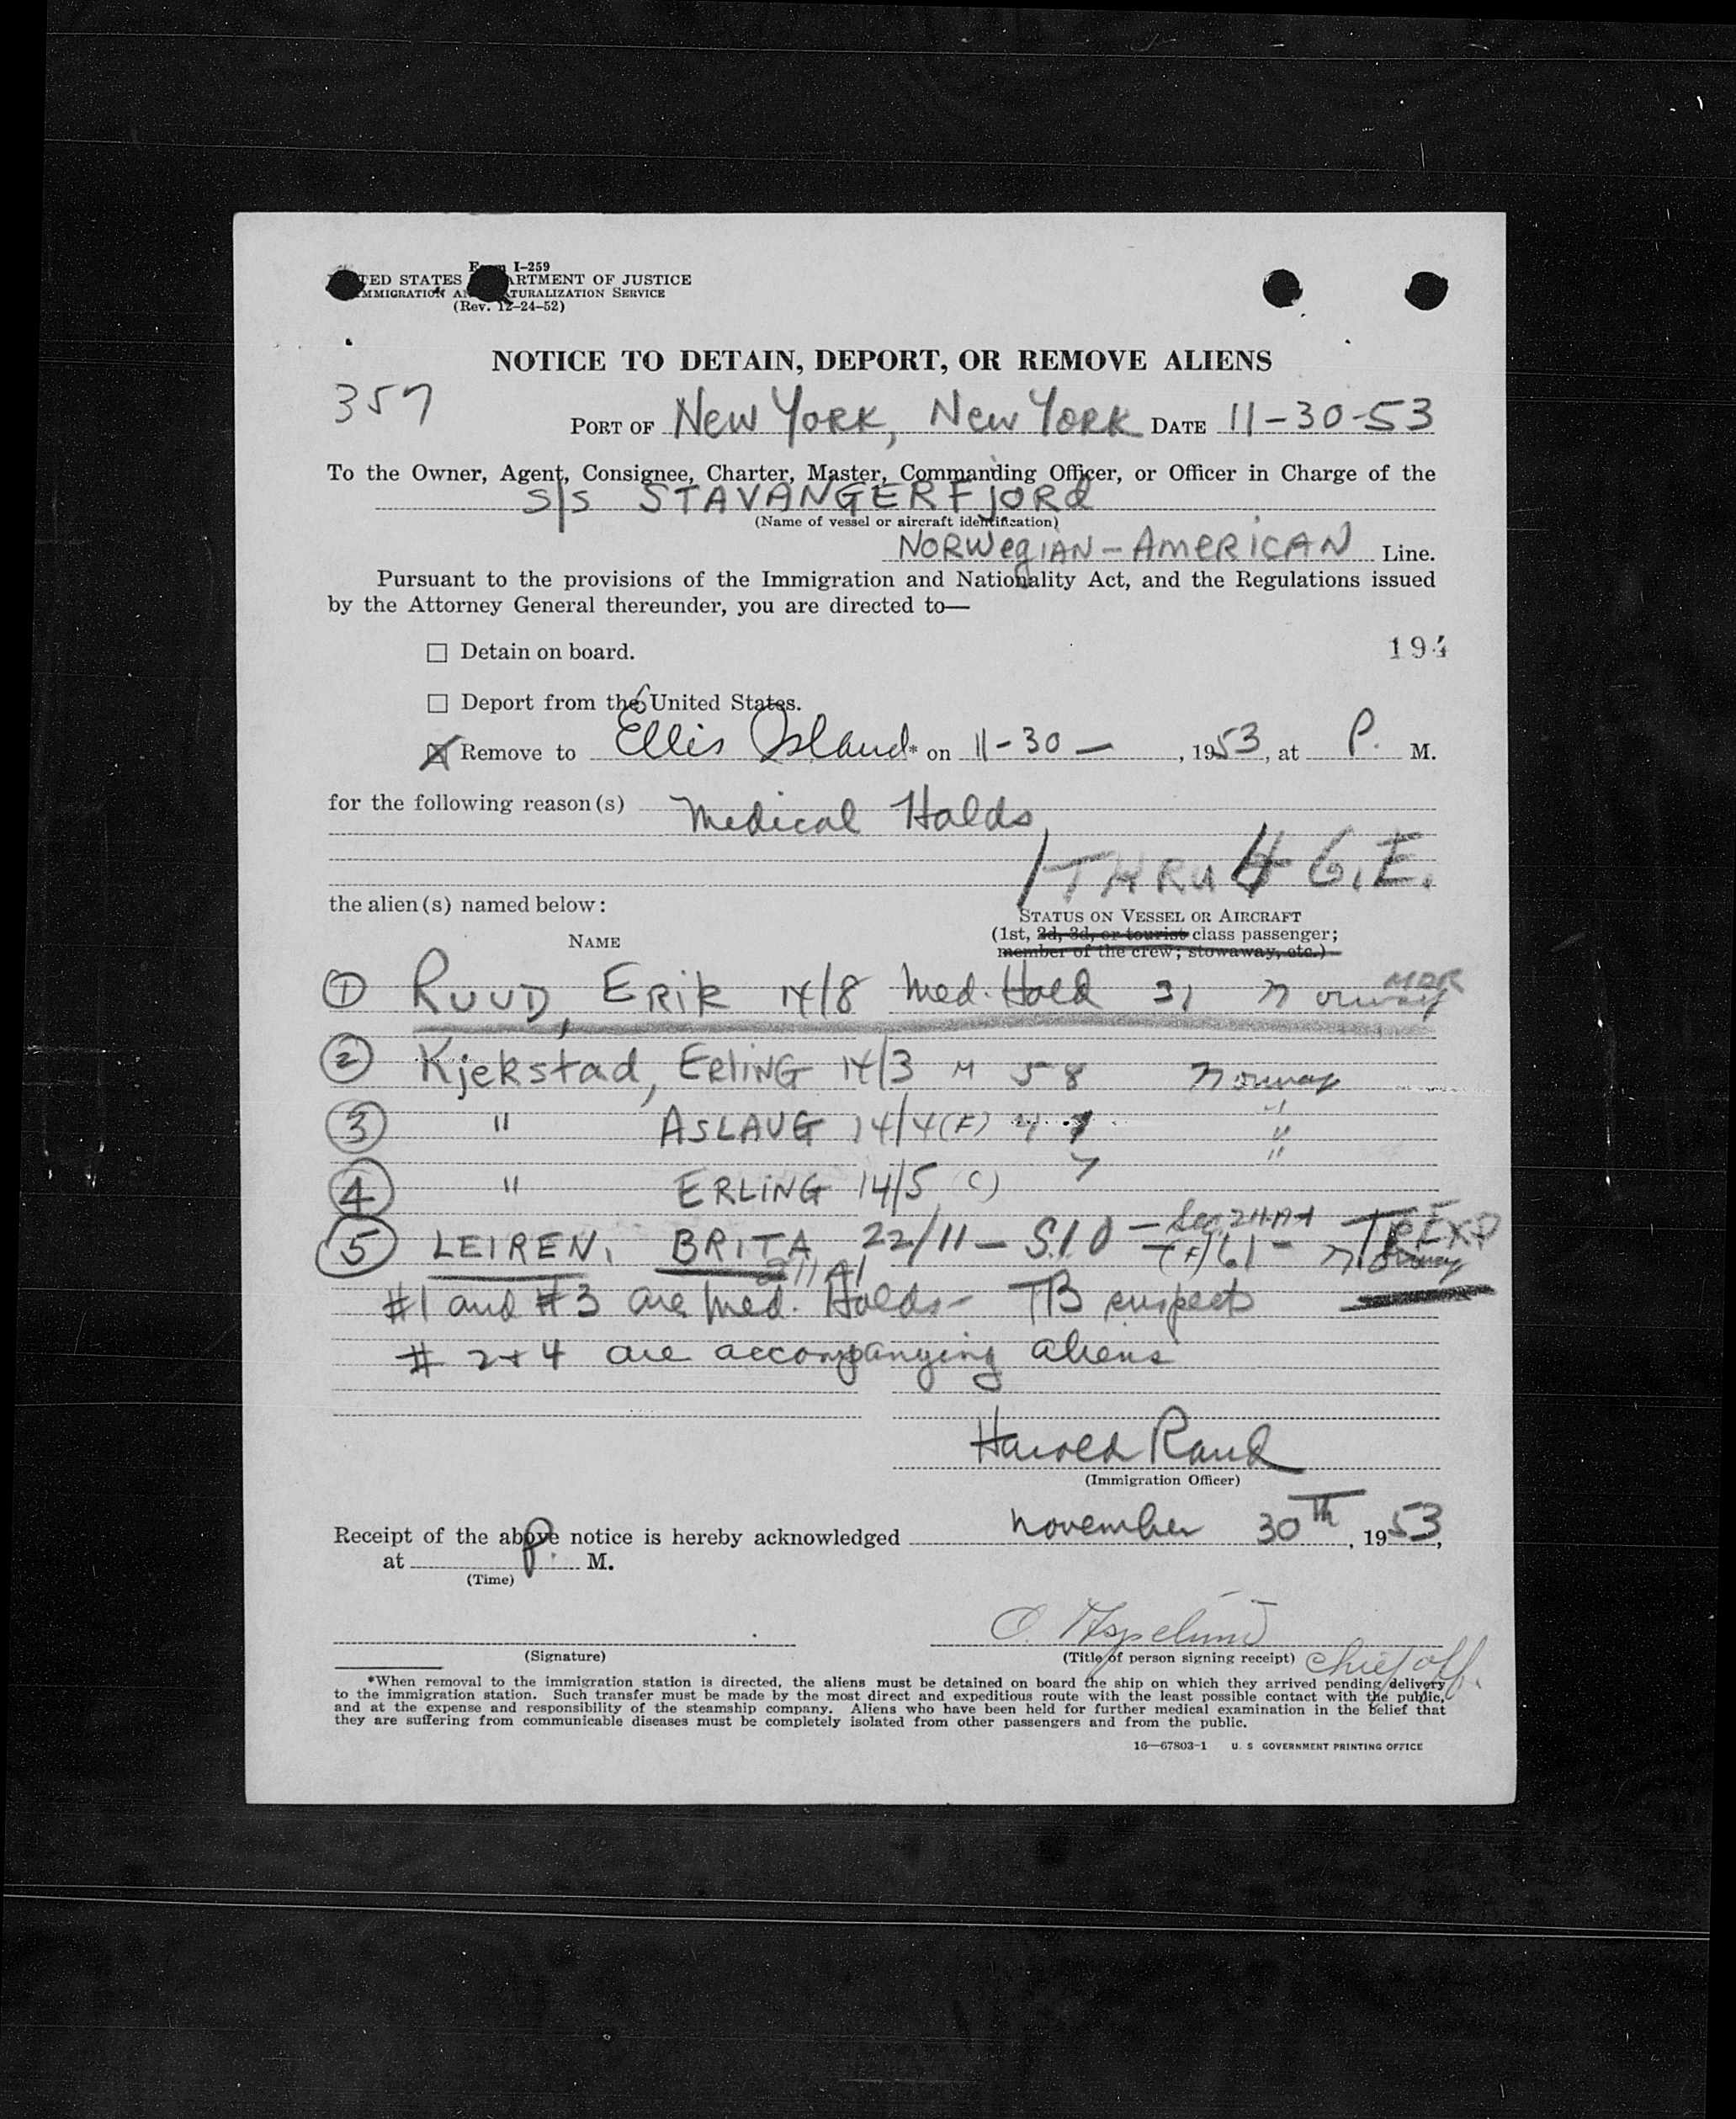 Form I-259
UNITED STATES DEPARTMENT OF JUSTICE
IMMIGRATION AND NATURALIZATION SERVICE
(Rev. 12-24-52)
NOTICE TO DETAIN, DEPORT, OR REMOVE ALIENS
357
PORT OF New York, New York DATE 11-30-53
To the Owner, Agent, Consignee, Charter, Master, Commanding Officer, or Officer in Charge of the
S/S STAVANGERFjORd
(Name of vessel or aircraft identification)
NORWegIAN - AmeRICAN Line.
Pursuant to the provisions of the Immigration and Nationality Act, and the Regulations issued
by the Attorney General thereunder, you are directed to—
☐ Detain on board. 194
☐ Deport from the United States.
☒ Remove to Ellis Island* on 11-30 —, 1953, at P. M.
for the following reason(s) Medical Holds
1 THRU 4 G.E.
the alien(s) named below:
STATUS ON VESSEL OR AIRCRAFT
NAME
(1st, 2d, 3d, or tourist class passenger;
member of the crew; stowaway, etc.)
① RUUD, ERIK 14/8 Med. Hold 31 Norway
② Kjekstad, ERliNG 14/3 M 58 Norway
③ " ASLAUG 14/4 (F) "
④ " ERLiNG 14/5 (C) 7 "
⑤ LEIREN, BRITA 22/11 - S.I.O - (F) 61 - Norway
#1 and #3 are Med. Holds - TB suspects
# 2+4 are accompanying aliens
Harold Rand
(Immigration Officer)
Receipt of the above notice is hereby acknowledged November 30th, 1953,
at P. M.
(Time)
(Signature)
(Title of person signing receipt) chief off.
*When removal to the immigration station is directed, the aliens must be detained on board the ship on which they arrived pending delivery
to the immigration station. Such transfer must be made by the most direct and expeditious route with the least possible contact with the public,
and at the expense and responsibility of the steamship company. Aliens who have been held for further medical examination in the belief that
they are suffering from communicable diseases must be completely isolated from other passengers and from the public.
16—67803-1 U. S GOVERNMENT PRINTING OFFICE